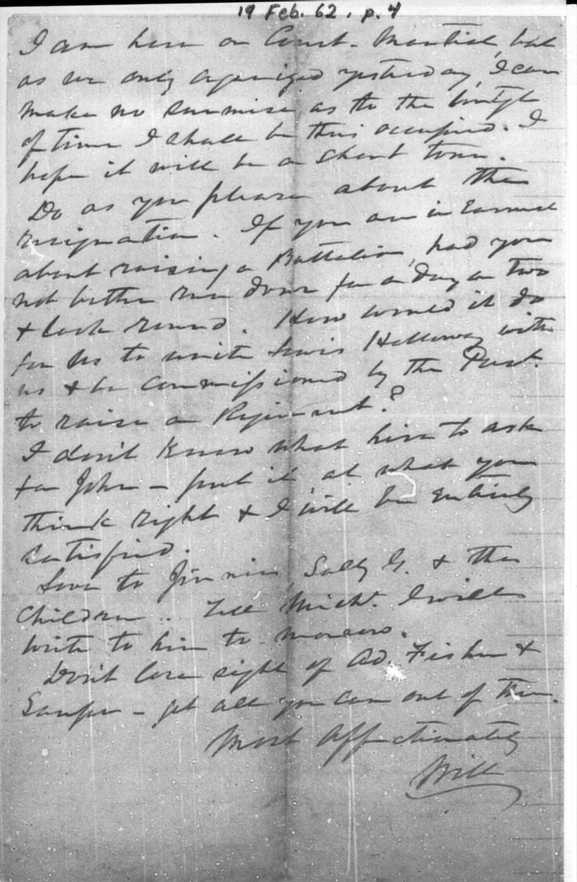 19 Feb. 62. p. 4
I am here on Court-Martial, but
as we only organized yesterday, I can
make no surmise, as to the length
of time I shall be thus occupied. I
hope it will be a short time.
Do as you please about the
resignation. If you are in Earnest
about raising a Battalion, had you
not better run down for a day or two
& look round. How would it do
for us to unite Lewis Holloway with
us & be Commissioned by the Prest.
to raise a Regiment?
I don't know what hire to ask
for John – put it at what you
think right & I will be Entirely
Satisfied.
Love to Jinnie, Sally G. & the
Children. Tell Michl. I will
write to him to morrow.
Don't lose sight of Ad. Fisher &
– get all you can out of them.
Most Affectionately
Will